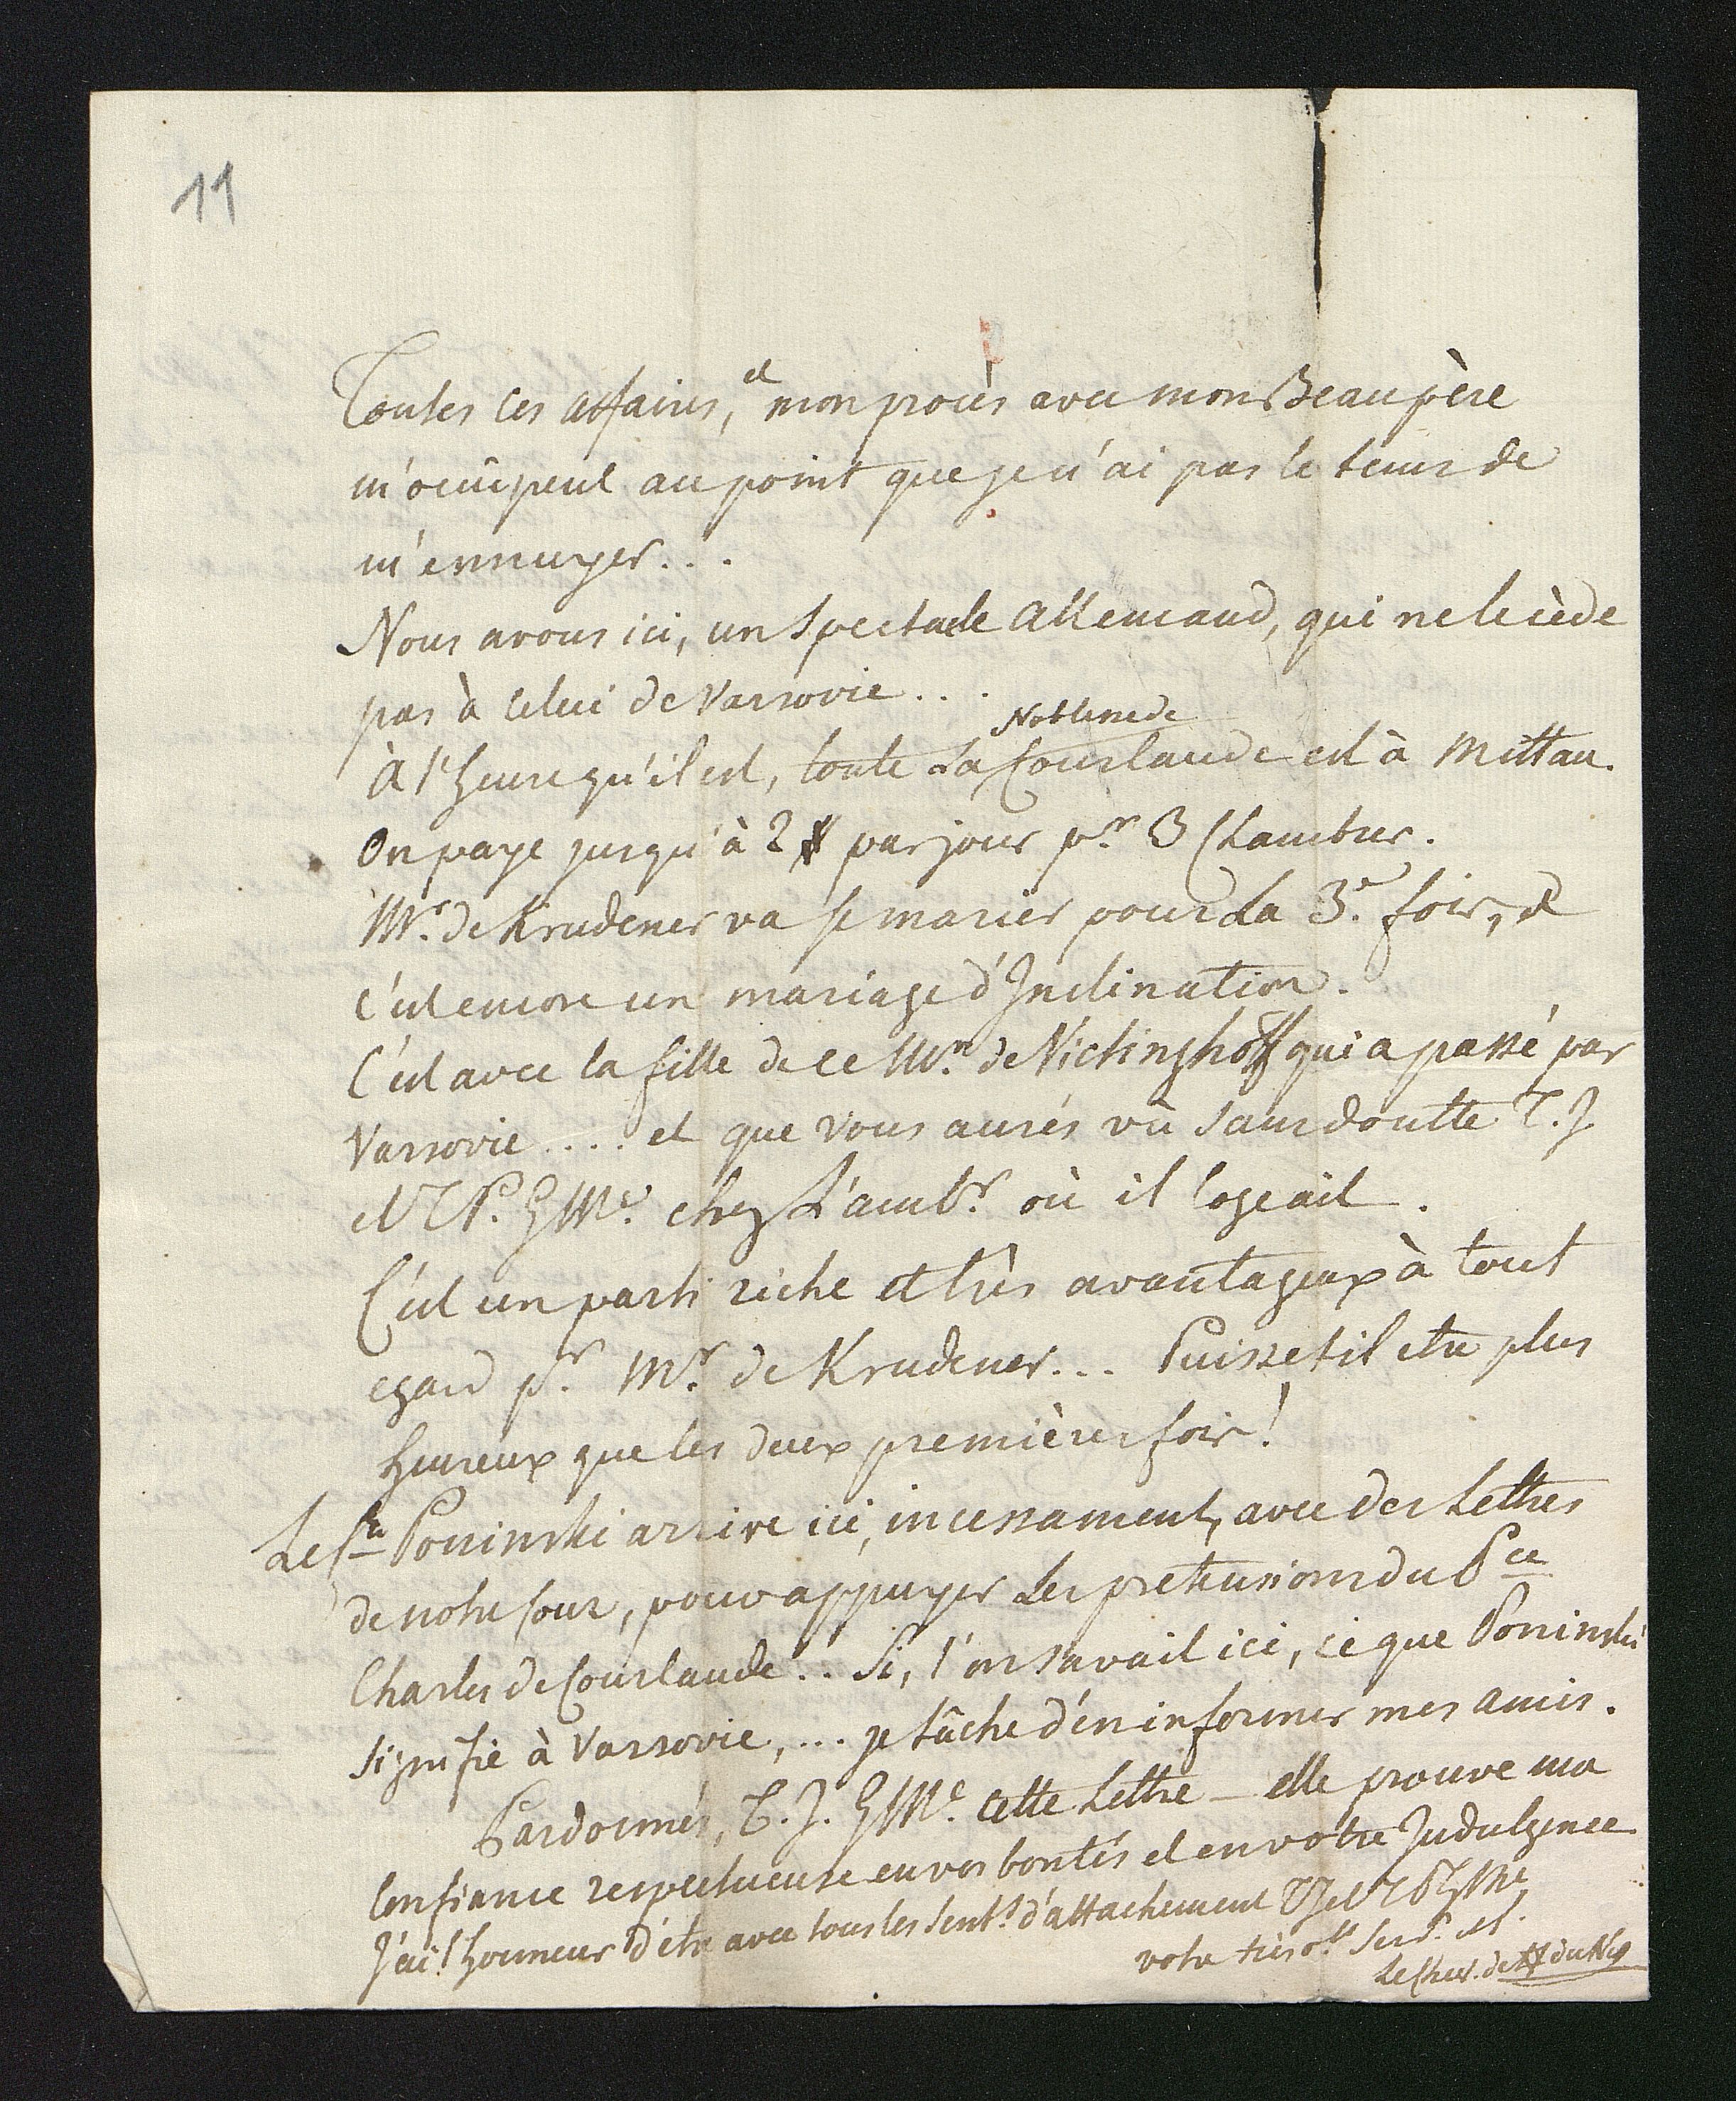 11
Toutes ces affaires, et mon procès avec mon Beaupère
m'occupent au point que je n'ai pas le tems de
m'ennuyer...
Nous avons ici, un Spectacle Allemand, qui ne le cède
pas à celui de Varsovie...
Noblesse de
à l'heure qu'il est, toute La Courlande est à Mittau.
On paye jusqu'à 2 # par jour pr. 3 Chambres.
Mr. de Krudener va se marier pour La 3e. fois, et
C'est encore un mariage d'Inclination.
C'est avec la fille de ce Mr. de Vietinghoff qui a passé par
Varsovie .... et que vous aurés vû sans doutte T. J.
et T P. G Me. chez L'ambr. où il logeait.
C'est un parti riche et très avantageux à tout
egard pr. Mr. de Krudener... Puisse til etre plus
heureux que les deux premières fois!
Le Poninski arrive ici, incessament, avec des Lettres
de notre Cour, pour appuyer Les pretensions du Pce
Charles de Courlande.. Si, l'on savait ici, ce que Poninski
signifie à Varsovie,... je tâche d'en informer mes amis.
Pardonnés, T. J. G Me. cette Lettre - elle prouve ma
Confiance respectueuse en vos bontés et en votre Indulgence
J'ai l'honneur d'etre avec tous les Sents. d'attachement T J et T P G Me
votre très o. Serv. et.
Le Chev. de